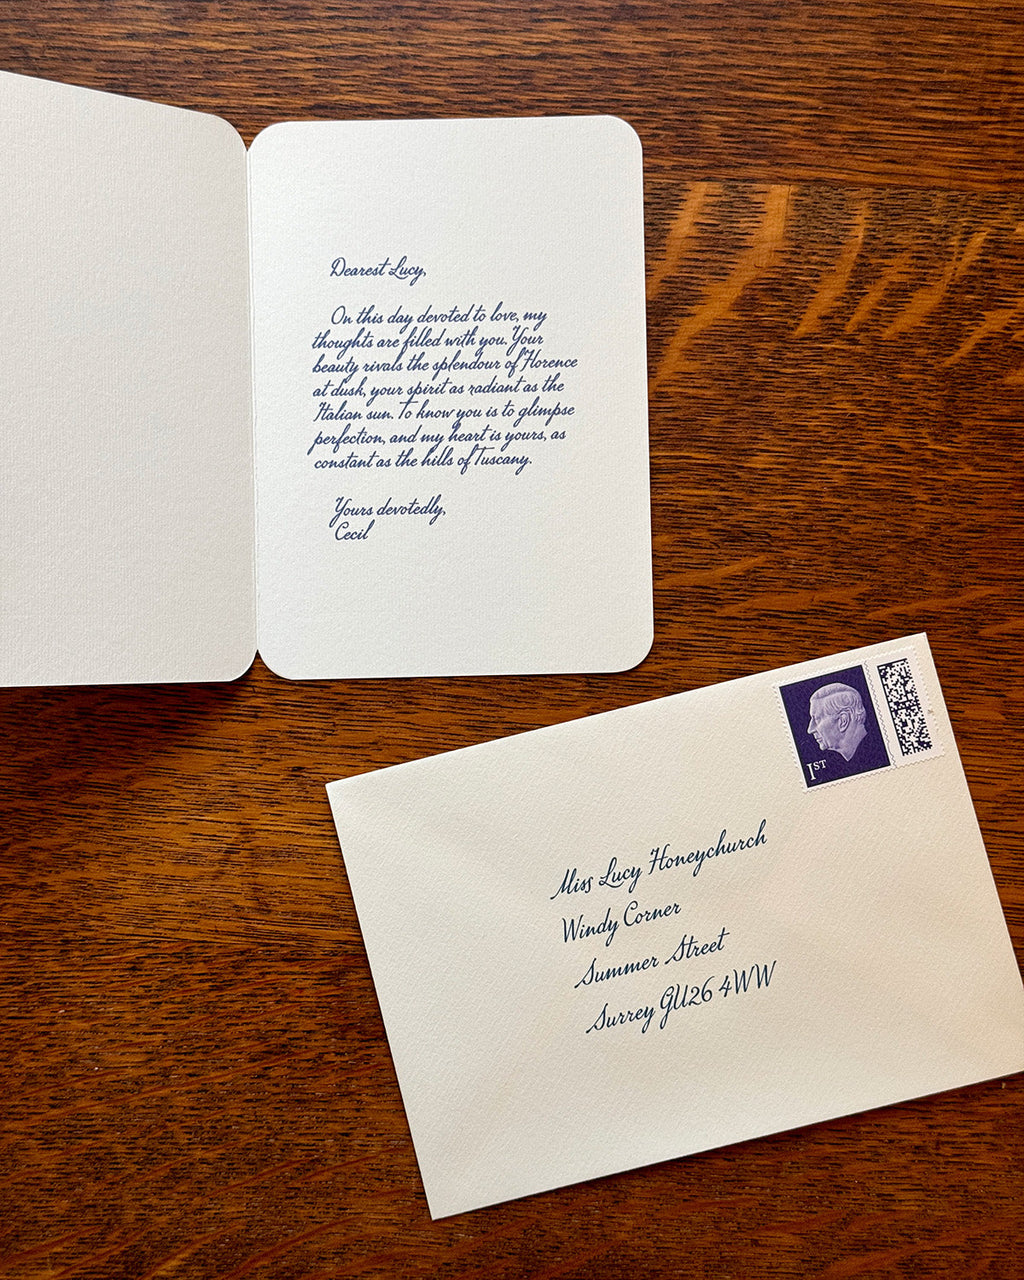 Dearest Lucy,
On this day devoted to love, my
thoughts are filled with you. Your
beauty rivals the splendour of Florence
at dusk, your spirit as radiant as the
Italian sun. To know you is to glimpse
perfection, and my heart is yours, as
constant as the hills of Tuscany.
Yours devotedly,
Cecil
1ST
Miss Lucy Honeychurch
Windy Corner
Summer Street
Surrey GU26 4WW